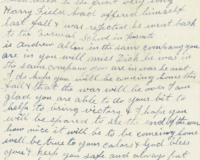 Harry Fielas has offered himself
last fall & was rejected he went back
to the Normal School in Toronto
is Andrew Allan in the same company you
are in you will miss Dick he was in
the same company over are in was he not
I do hope you will be coming home this
fall & that the war will be over I am
glad you are able to do your bit to
help to bring victory & I hope you
will be spared to see the end of the war
how nice it will be to be coming home
will be true to your colors & God bless
you & keep you safe and always put